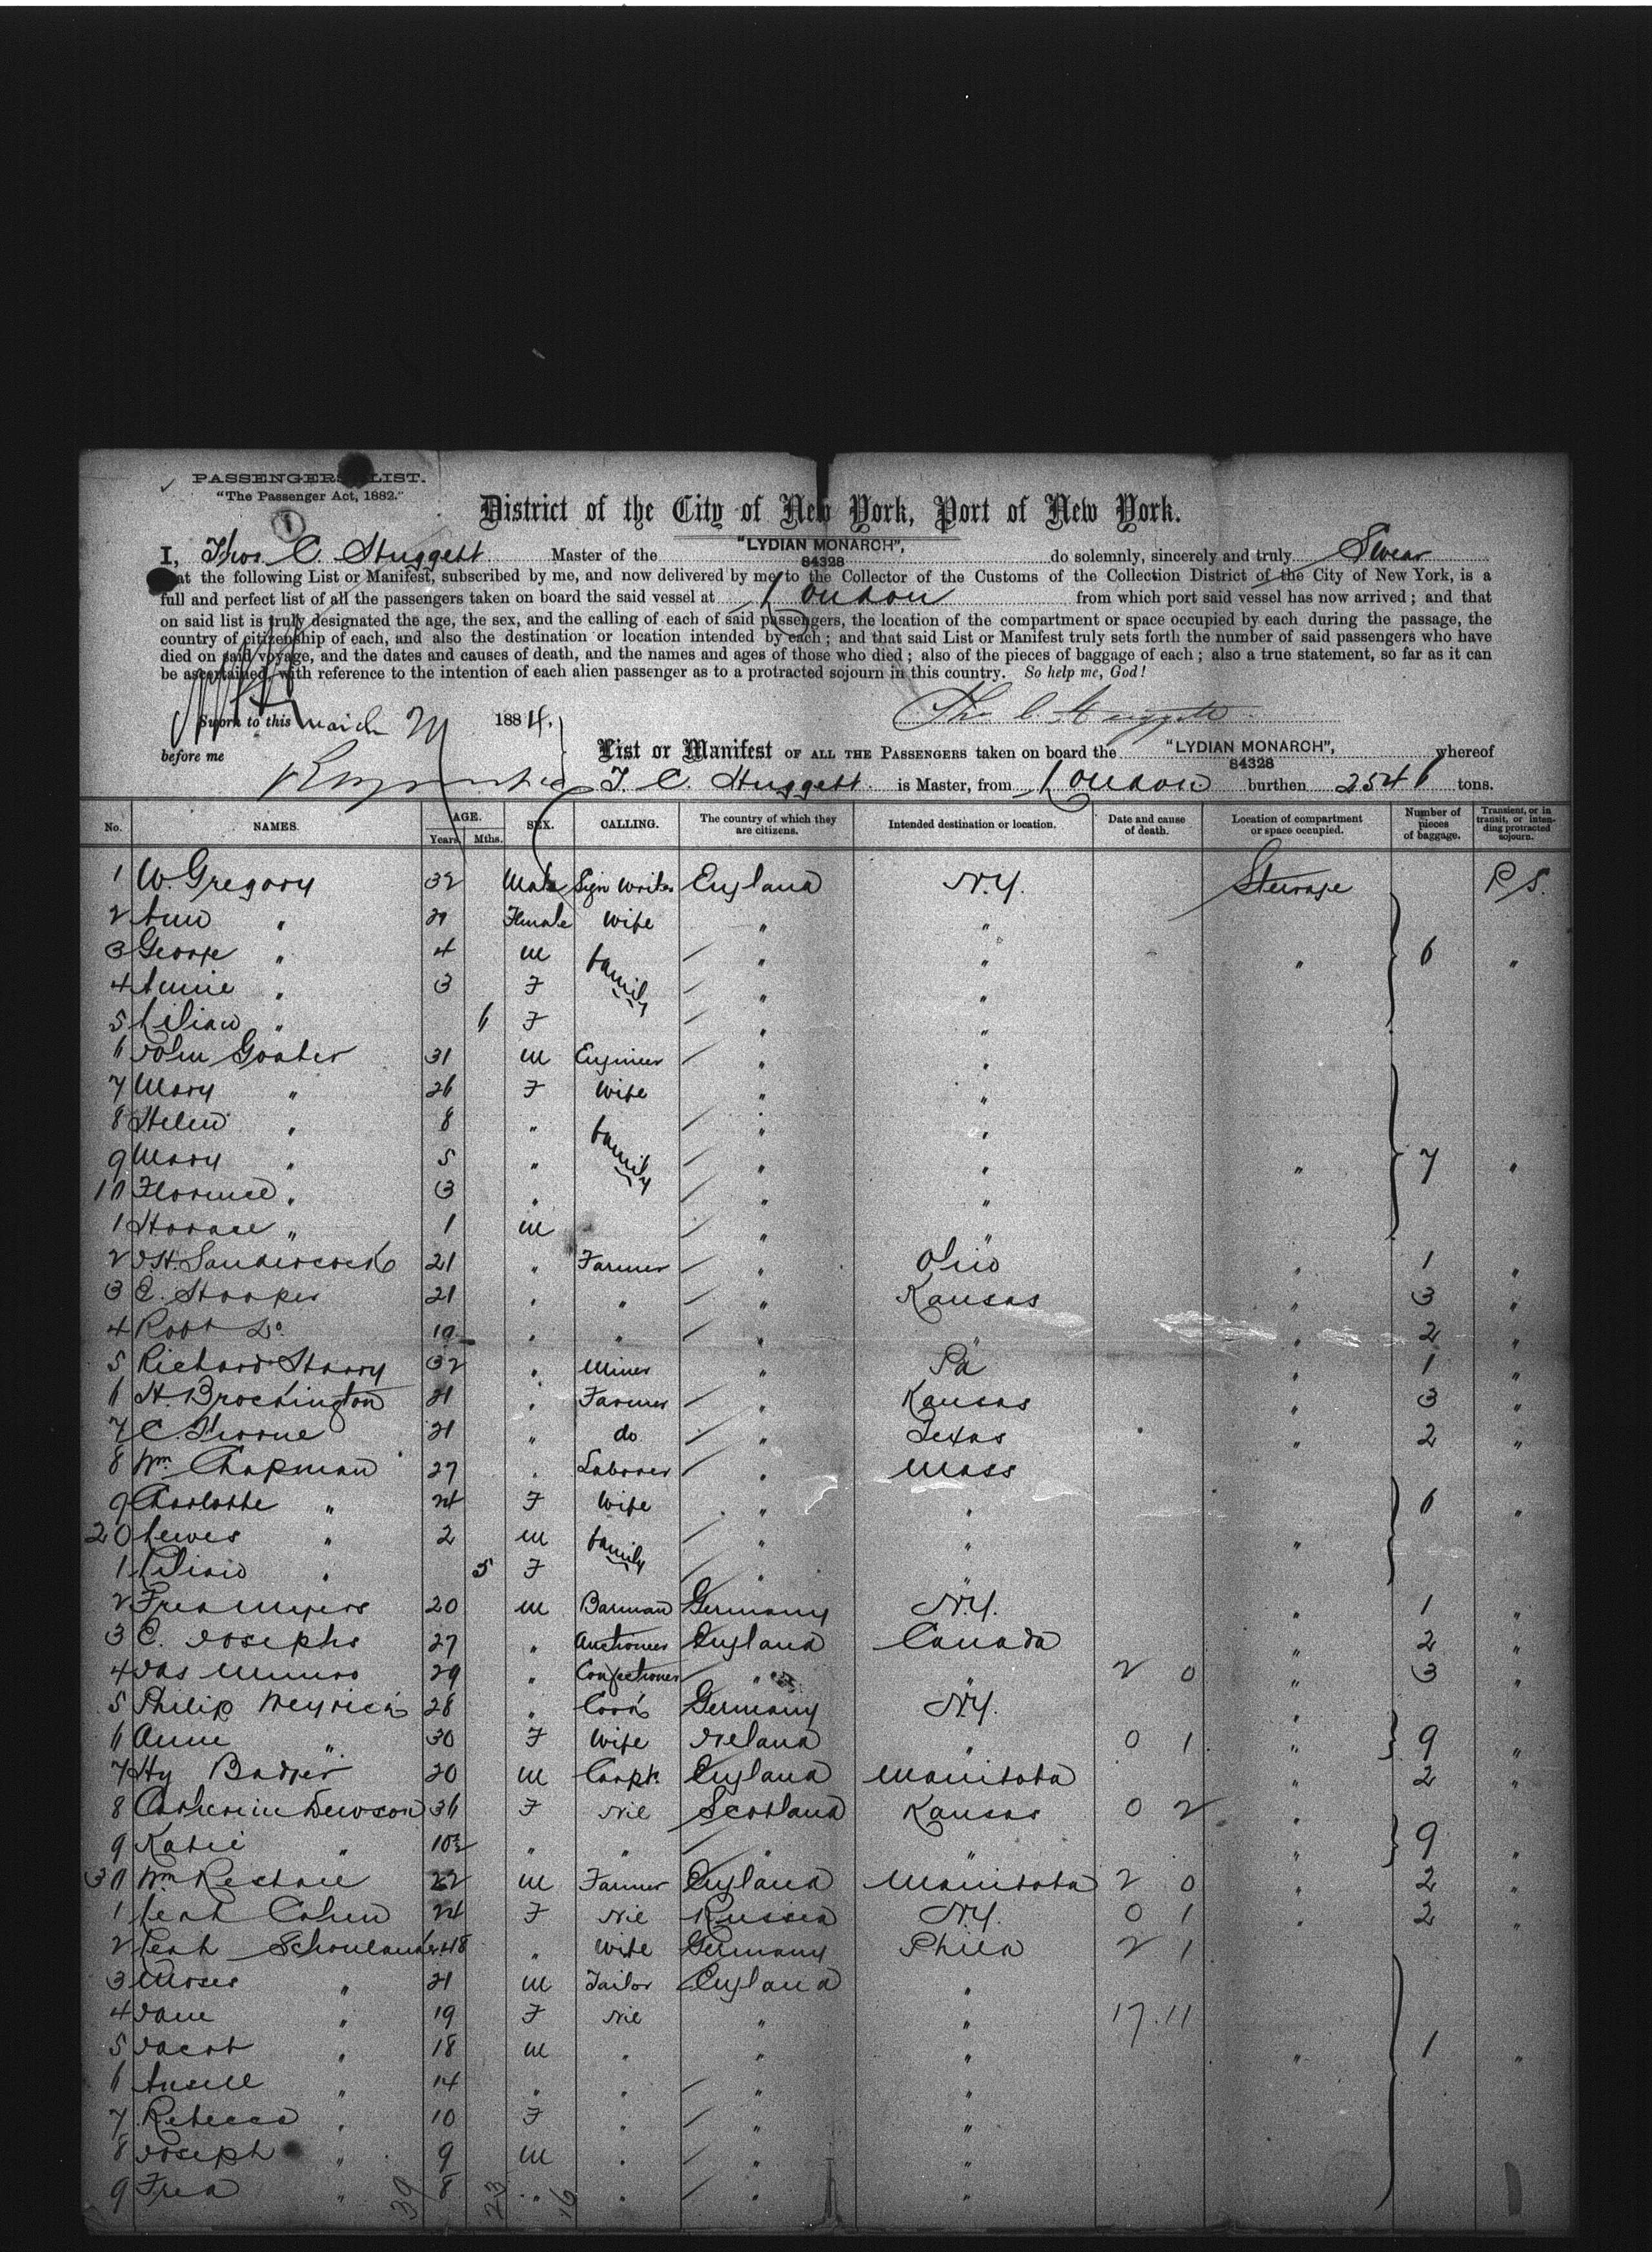 PASSENGERS LIST.
"The Passenger Act, 1882."
1
District of the City of New York, Port of New York.
I, Thos. C. Huggett Master of the "LYDIAN MONARCH", 84328 do solemnly, sincerely and truly Swear
at the following List or Manifest, subscribed by me, and now delivered by me to the Collector of the Customs of the Collection District of the City of New York, is a
full and perfect list of all the passengers taken on board the said vessel at London from which port said vessel has now arrived ; and that
on said list is truly designated the age, the sex, and the calling of each of said passengers, the location of the compartment or space occupied by each during the passage, the
country of citizenship of each, and also the destination or location intended by each ; and that said List or Manifest truly sets forth the number of said passengers who have
died on said voyage, and the dates and causes of death, and the names and ages of those who died ; also of the pieces of baggage of each ; also a true statement, so far as it can
be ascertained, with reference to the intention of each alien passenger as to a protracted sojourn in this country. So help me, God!
Sworn to this March 1884, Tho C Huggett
before me
List or Manifest OF ALL THE PASSENGERS taken on board the "LYDIAN MONARCH", 84328 whereof
T. C. Huggett is Master, from London burthen 2546 tons.
No. NAMES. AGE. Years. Mths. SEX. CALLING. The country of which they are citizens. Intended destination or location. Date and cause of death. Location of compartment or space occupied. Number of pieces of baggage. Transient, or in transit, or intending protracted sojourn.
1 W. Gregory 32 Male Sign Writer England N.Y. Steerage P S.
2 Ann " Female Wife " "
3 George " 4 M Family " " " 6 "
4 Annie " 3 F " "
5 Lilian " 6 F " "
6 John Goater 31 M Engineer " "
7 Mary " 26 F Wife " "
8 Helen " 8 " Family " "
9 Mary " 5 " " " " 7 "
10 Florence " 3 " " "
1 Horace " 1 M " "
2 J.H. Sandercock 21 " Farmer " Ohio " 1 "
3 E. Hooper 21 " " " Kansas " 3 "
4 Robt Do. 19 " " " " " 2 "
5 Richard Harry 32 " Miner " Pa " 1 "
6 H. Brockington 21 " Farmer " Kansas " 3 "
7 C. Thorne 21 " do " Texas " 2 "
8 Wm Chapman 27 " Laborer " Mass
9 Charlotte " 24 F Wife " " 6 "
20 Lewes " 2 M Family " " "
1 " 5 F " "
2 Fred Myers 20 M Barman Germany N.Y. " 1 "
3 C. Josephs 27 " Auctioneer England Canada " 2 "
4 Jas Munro 29 " Confectioner " " 2 0 " 3 "
5 Philip Weyrich 28 " Cook Germany N.Y. "
6 Anne " 30 F Wife Ireland " 0 1 " 9 "
7 Hy Badger 20 M Carptr England Manitoba " 2 "
8 Catherine Dewson 36 F Nil Scotland Kansas 0 2 "
9 Katie " 10½ " " " " " 9 "
30 Wm 22 M Farmer England Manitoba 2 0 " 2 "
1 Leah Cohen 24 F Nil Russia N.Y. 0 1 " 2 "
2 Leah Schonlander 48 " Wife Germany Phila 2 1
3 Moses " 21 M Tailor England "
4 Jane " 19 F Nil " " 17.11
5 Jacob " 18 M " " " " 1 "
6 Ansell " 14 " " " "
7 Rebecca " 10 F " " "
8 Joseph " 9 M " " "
9 Fred " 8 " " " "
39 23 16